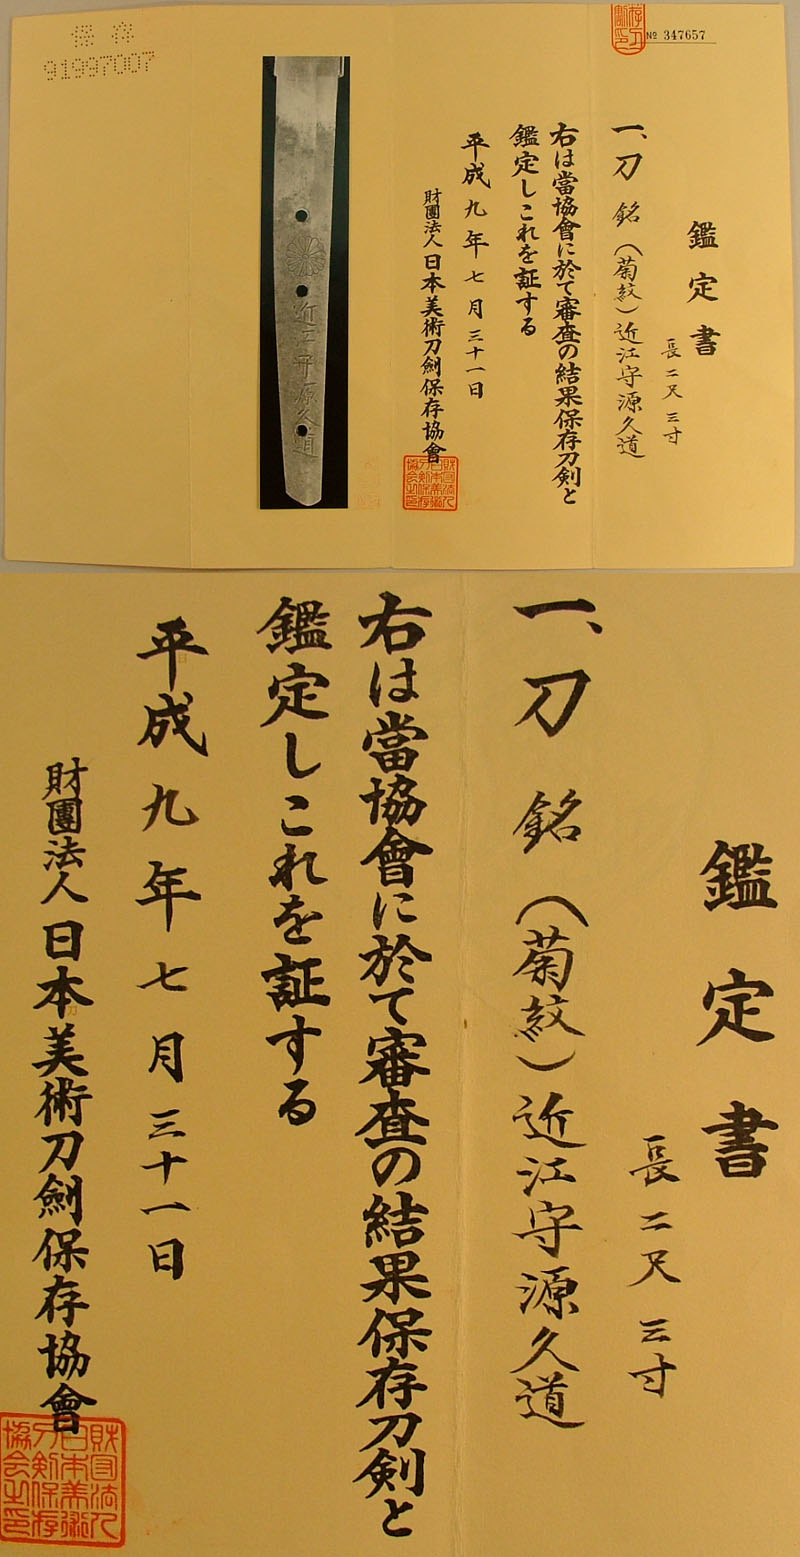 保存
91997007
№ 347657
鑑定書
長二尺三寸
一、刀 銘(菊紋)近江守源久道
右は當協會に於て審査の結果保存刀剣と
鑑定しこれを証する
平成九年七月三十一日
財團法人日本美術刀劍保存協會
財団法人日本美術刀剣保存協会之印
近江守源久道
鑑定書
長二尺三寸
一、刀 銘(菊紋)近江守源久道
右は當協會に於て審査の結果保存刀剣と
鑑定しこれを証する
平成九年七月三十一日
財團法人日本美術刀劍保存協會
財団法人日本美術刀剣保存協会之印